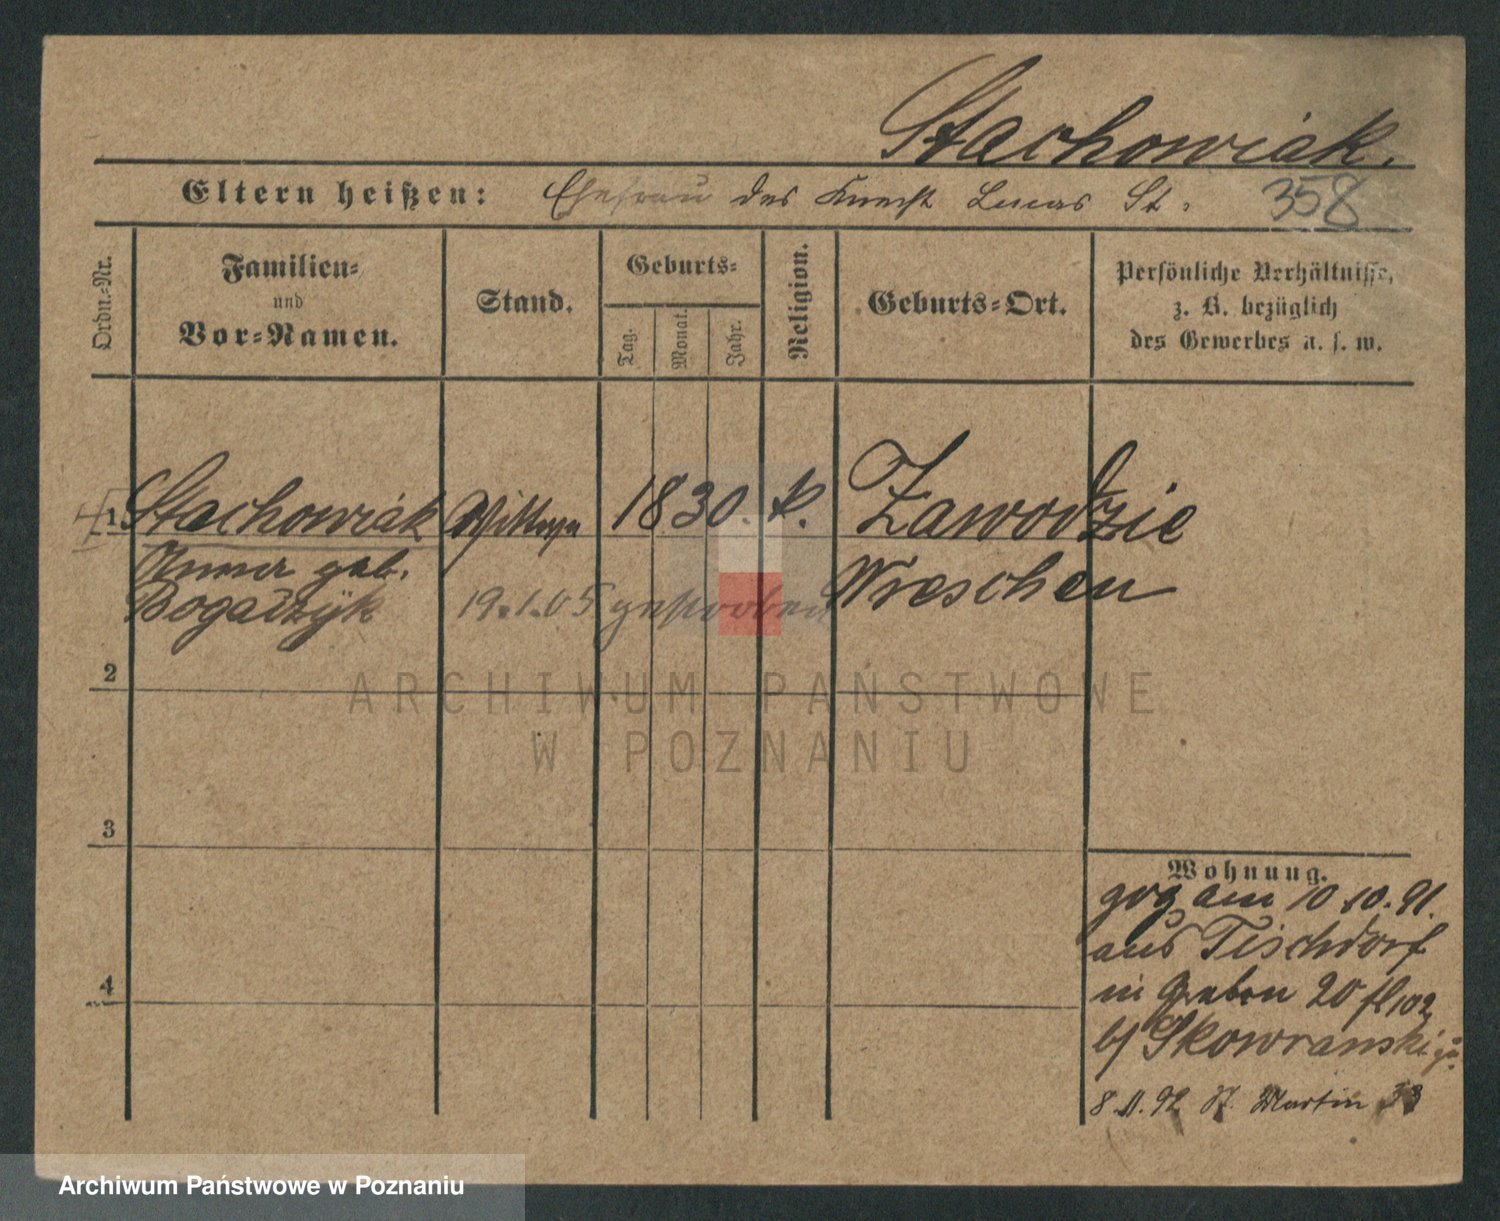 Stachowiak.
Eltern heißen: Ehefrau des Knecht Lucas St. 358
Ordn.-Nr.
Familien-
und
Vor-Namen.
Stand.
Geburts-
Tag.
Monat.
Jahr.
Religion.
Geburts-Ort.
Persönliche Verhältnisse,
z. B. bezüglich
des Gewerbes u. s. w.
1 Stachowiak Wittwe 1830. k. Zawodzie
Anna geb. Wreschen
Bogaczÿk 19.1.05 gestorben
2
ARCHIWUM PAŃSTWOWE
W POZNANIU
3
Wohnung.
gog am 10.10.91.
aus Tischdorf
in Graben 20
b/ Skowranski
4
8.11.92 St. Martin 33
Archiwum Państwowe w Poznaniu